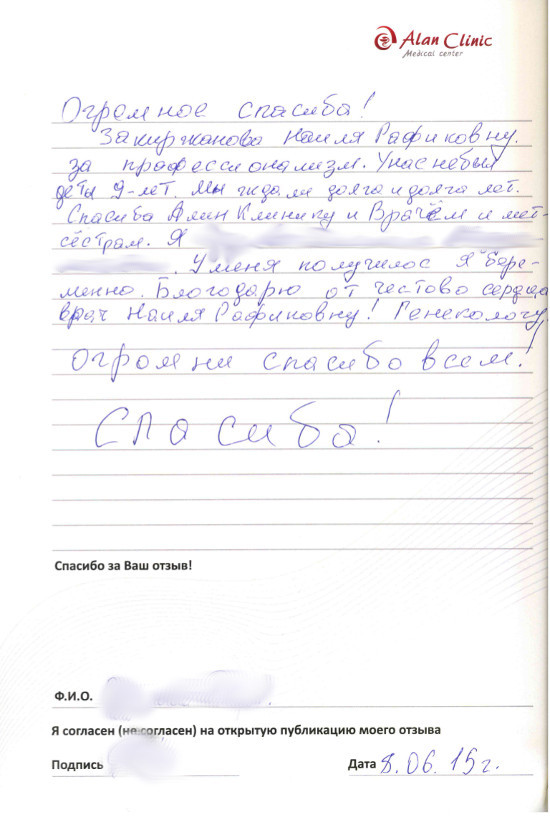 Alan Clinic
Medical center
Огромное спасиба!
Закиржанова Наиля Рафиковну.
за профессионализм. Унас небыл
деты 9-лет. Мы ждали долга и долга лет.
Спасиба Алан Клинику и Врачём и мет-
сёстрам. Я
. У меня получилос я бере-
менно. Блогодарю от честово сердца
врач Наиля Рафиковну! Генекологу
Огромни спасибо всем!
Спасиба!
Спасибо за Ваш отзыв!
Ф.И.О.
Я согласен (не согласен) на открытую публикацию моего отзыва
Подпись
Дата 8.06.15г.